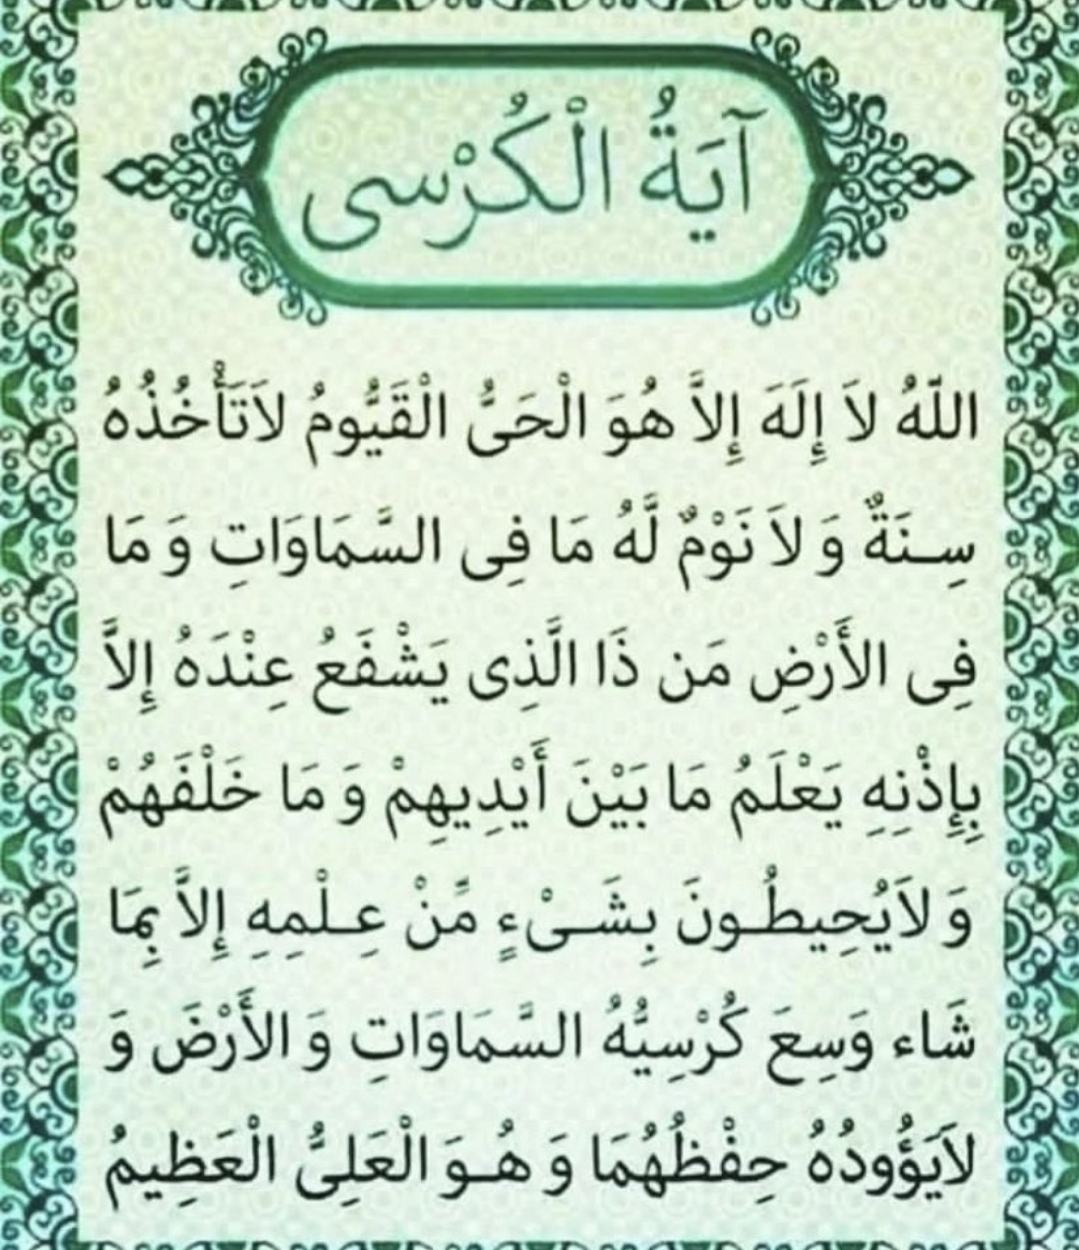 آيَةُ الْكُرْسى
اللّهُ لاَ إِلَهَ إِلاَّ هُوَ الْحَىُّ الْقَيُّومُ لاَتَأْخُذُهُ
سِـنَةٌ وَ لاَ نَوْمٌ لَّهُ مَا فِى السَّمَاوَاتِ وَ مَا
فِى الأَرْضِ مَن ذَا الَّذِى يَشْفَعُ عِنْدَهُ إِلاَّ
بِإِذْنِهِ يَعْلَمُ مَا بَيْنَ أَيْدِيهِمْ وَ مَا خَلْفَهُمْ
وَ لاَيُحِيطُـونَ بِشَـىْءٍ مِّنْ عِـلْمِهِ إِلاَّ بِمَا
شَاء وَسِعَ كُرْسِيُّهُ السَّمَاوَاتِ وَ الأَرْضَ وَ
لاَيَؤُودُهُ حِفْظُهُمَا وَ هُـوَ الْعَلِىُّ الْعَظِيمُ